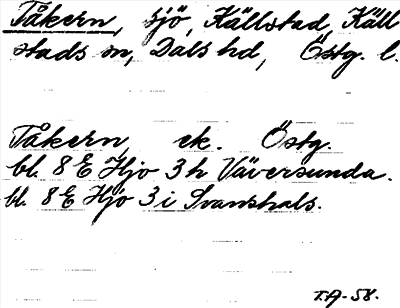 Tåkern, sjö, Källstad, Käll
stads sn, Dals hd, Östg. l.
Tåkern, ek. Östg.
bl. 8 E Hjo 3 h Väversunda.
bl. 8 E Hjo 3 i Svanshals.
T.A-58.